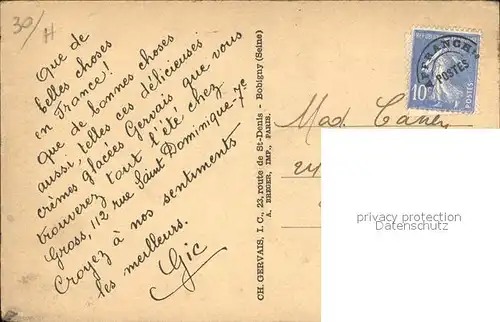 30/H
Que de
belles choses
en France!
Que de bonnes choses
aussi, telles ces délicieuses
crèmes glacées Gervais que vous
trouverez tout l'été chez
Gross, 112 rue Saint Dominique-7e
Croyez à nos sentiments
les meilleurs.
Gic
CH. GERVAIS, I. C., 23, route de St-Denis - Bobigny (Seine)
A. BREGER, IMP., PARIS.
AFFRANCHts
POSTES
10c
POSTES
Mad
privacy protection
VeryPrivateCards.com